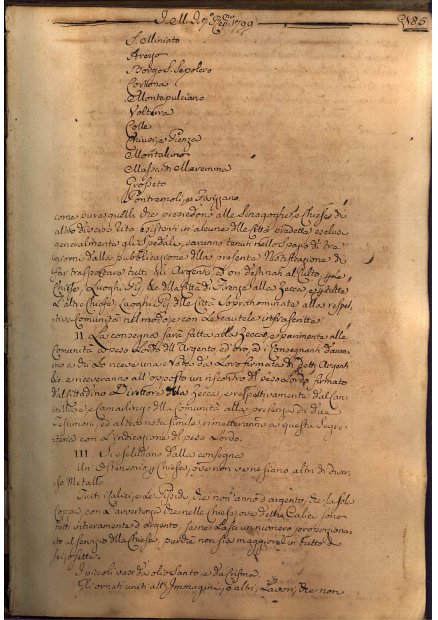 1799
S. Miniato
Arezzo
Borgo S. Sepolcro
Cortona
Montepulciano
Volterra
Colle
Chiusi, e Pienza
Montalcino
Massa di Maremma
Grosseto
Pontremoli, e
come pure quelli che presiedono alle Sinagoghe, e Chiese di
altro diverso Rito esistenti in alcune delle Città predette escluse
generalmente gli Spedali, saranno tenuti nello spazio di tre
giorni dalla pubblicazione della presente Notificazione di
far trasportare tutti gli Argenti, e Ori destinati al Culto
Chiese, Luoghi Pii, della Città di Firenze alla Zecca
L'altre Chiese, Luoghi Pii delle Città Sopranominate alla respet-
tiva Comunità nel modo, e con le cautele infrascritte.
II. La consegna sarà fatta alla Zecca, e parimente alle
Comunità a peso Lordo dell'Argento ed oro, ed i Consegnanti daran-
no a chi Lo riceve una Nota da Loro firmata di detti Argenti
e riceveranno all'opposto un riscontro di peso Lordo firmato
dal Cittadino Direttore della Zecca, e respettivamente dal Can-
celliere, e Camarlingo della Comunità alla presenza di due
Testimoni, ed altra nota simile rimetteranno a questa Segre-
teria con L'indicazione del peso Lordo.
III. Si escludano dalla consegna
Un Ostensorio per Chiesa, ove non ve ne siano altri di diver-
so Metallo.
Tutti i Calici, e Le Pissidi che non anno d'argento, che la sol
Coppa, con l'avvertenza che nelle Chiese, ove detti Calici sono
tutti intieramente d'argento, se ne Lasci un numero proporziona-
to al servizio della Chiesa, purchè non sia maggiore in tutto di
sei
I piccoli vasi da olio Santo, e da Crisma.
Gli ornati uniti all'Immagini, o altri Lavori, che non